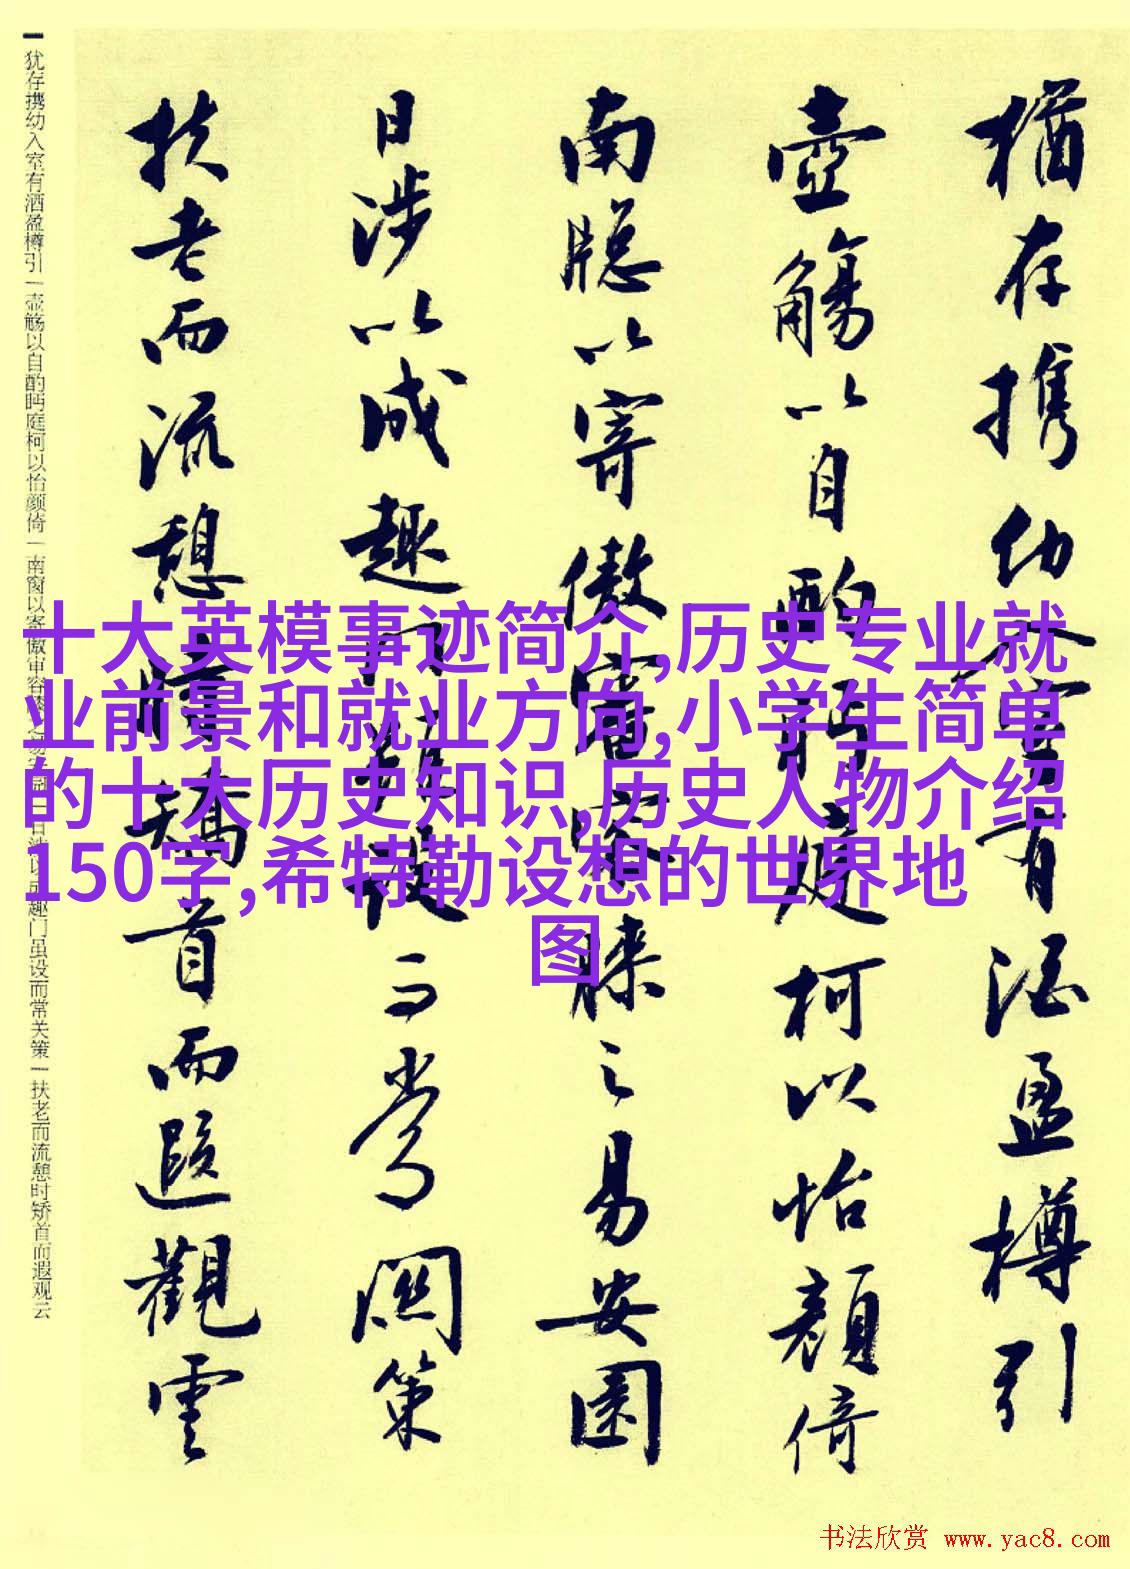 猶存携幼入室有酒盈樽引
壺觴以自酌眄庭柯以怡顔倚
南牕以寄傲審容膝之易安園
日涉以成趣门雖設而常關策
扶老而流憩時矯首而遐觀雲
犹存携幼入室有酒盈樽引 壶觞以自酌眄庭柯以怡颜倚 南窗以寄傲审容膝之易安园日涉以成趣门虽设而常关策 扶老而流憩时矫首而遐观云
十大英模事迹简介,历史专业就
业前景和就业方向,小学生简单
的十大历史知识,历史人物介绍
150字,希特勒设想的世界地
图
书法欣赏 www.yac8.com